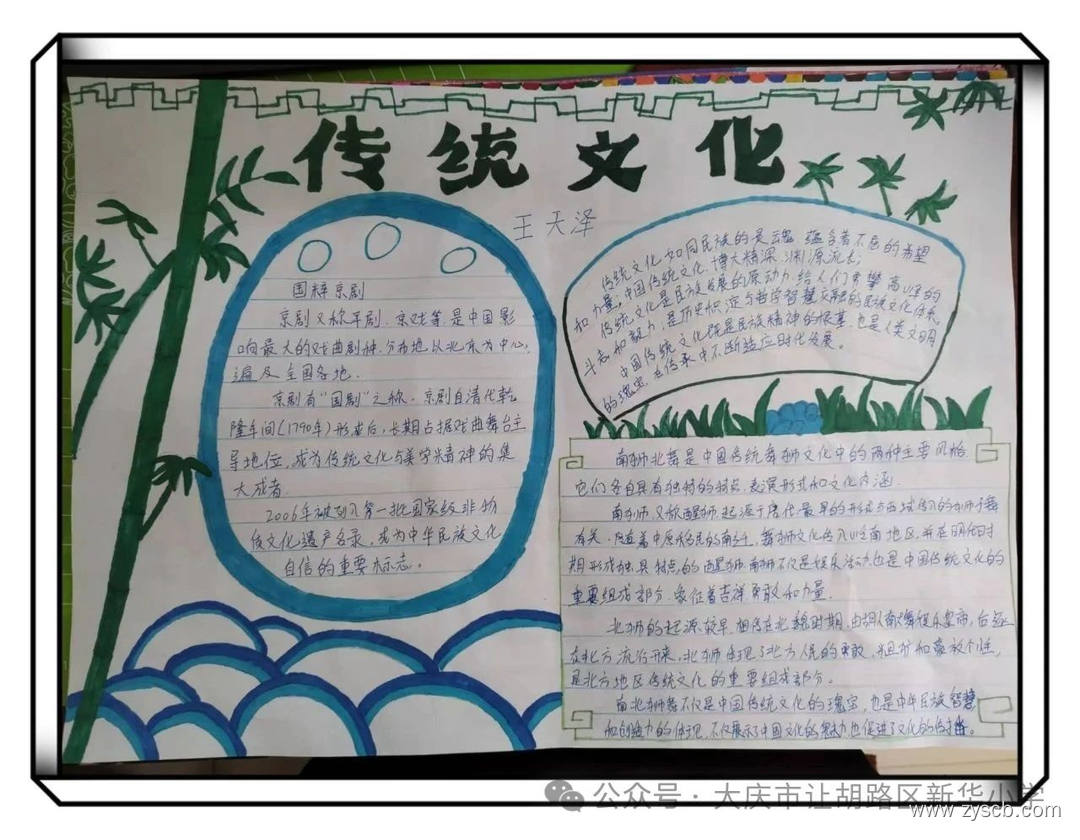 传统文化
王天泽
国粹京剧
京剧又称平剧、京戏等,是中国影
响最大的戏曲剧种,分布地以北京为中心,
遍及全国各地.
京剧有“国剧”之称。京剧自清代乾
隆年间(1790年)形成后,长期占据戏曲舞台主
导地位,成为传统文化与美学精神的集
大成者.
2006年被列入第一批国家级非物
质文化遗产名录,成为中华民族文化
自信的重要标志。
传统文化如同民族的灵魂,蕴含着不息的希望
和力量,中国传统文化,博大精深,渊源流长;
传统文化是民族发展的原动力,给人们攀高峰的
斗志和毅力,是历史积淀与哲学智慧交融的民族文化体系。
中国传统文化既是民族精神的根基,也是人类文明
的瑰宝,在传承中不断适应时代发展。
南狮北舞是中国传统舞狮文化中的两种主要风格,
它们各自具有独特的特点,表演形式和文化内涵.
南狮又称醒狮,起源于唐代最早的形式与西域传入的狮子舞
有关。随着中原移民的南迁,舞狮文化传入岭南地区,并在明代时
期形成独具特点的醒狮.南狮不仅是娱乐活动,也是中国传统文化的
重要组成部分,象征着吉祥勇敢和力量.
北狮的起源较早,相传在北魏时期,由胡人献舞娱乐皇帝,后逐
在北方流行开来,北狮体现了北方人民的勇敢,粗犷和豪放个性,
是北方地区传统文化的重要组成部分。
南北狮舞不仅是中国传统文化的瑰宝,也是中华民族智慧
和创造力的体现,不仅展示了中国文化的魅力,也促进了文化的传播。
公众号·大庆市让胡路区新华小学
www.zyscb.com